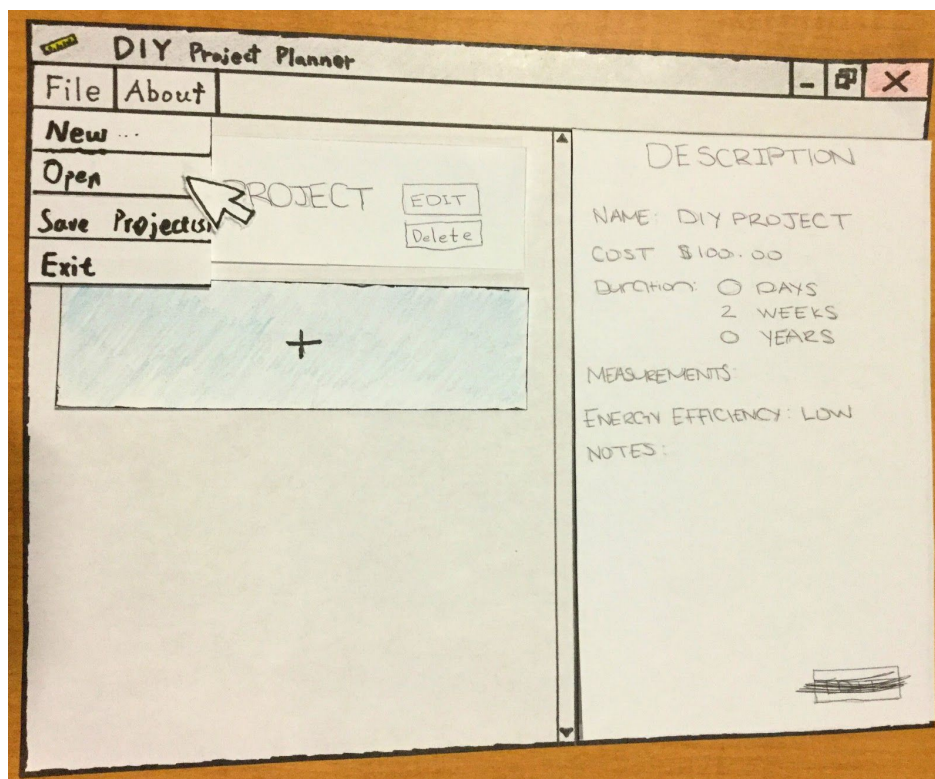 DIY Project Planner
File About
New ...
Open
Save Project(s)
Exit
PROJECT
EDIT
Delete
+
DESCRIPTION
NAME: DIY PROJECT
COST $100.00
Duration: 0 DAYS
2 WEEKS
0 YEARS
MEASUREMENTS:
ENERGY EFFICIENCY: LOW
NOTES: